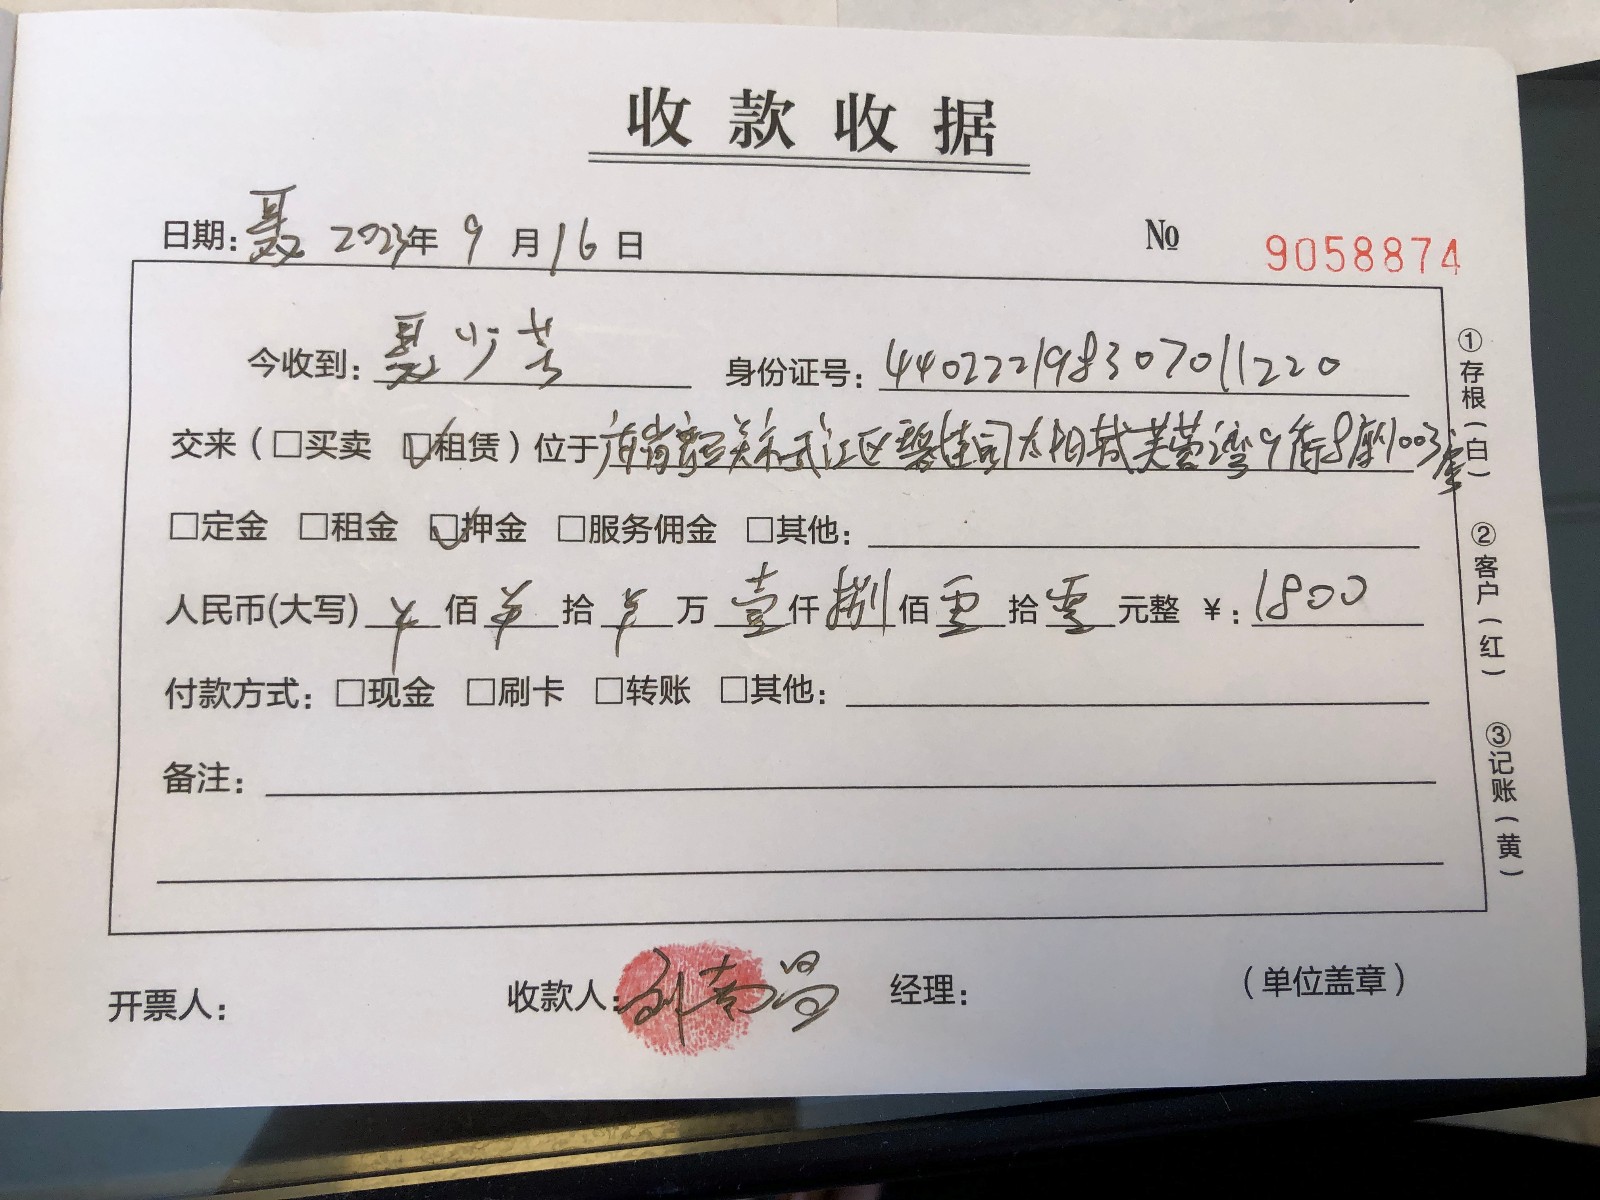 收款收据
日期: 聂 2023年 9 月 16 日 № 9058874
今收到: 聂少芳 身份证号: 440222198307011220
交来（□买卖 ☑租赁）位于 广东省韶关市武江区碧桂园太阳城芙蓉湾9街8座1003房
□定金 □租金 ☑押金 □服务佣金 □其他:
人民币(大写) ¥ 佰 零 拾 零 万 壹 仟 捌 佰 零 拾 零 元整 ￥: 1800
付款方式: □现金 □刷卡 □转账 □其他:
备注:
开票人: 收款人: 经理: （单位盖章）
①存根(白) ②客户(红) ③记账(黄)